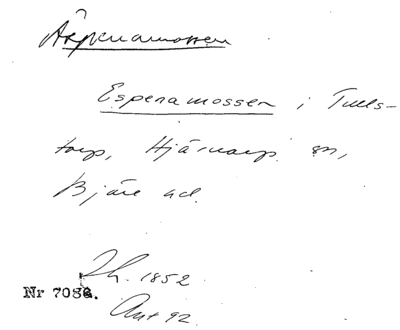 Äspenamossen
Espenamossen i Tulls-
torp, Hjärnarp sn,
Bjäre hd.
Lh. 1852
Nr 7086.
Ant 92